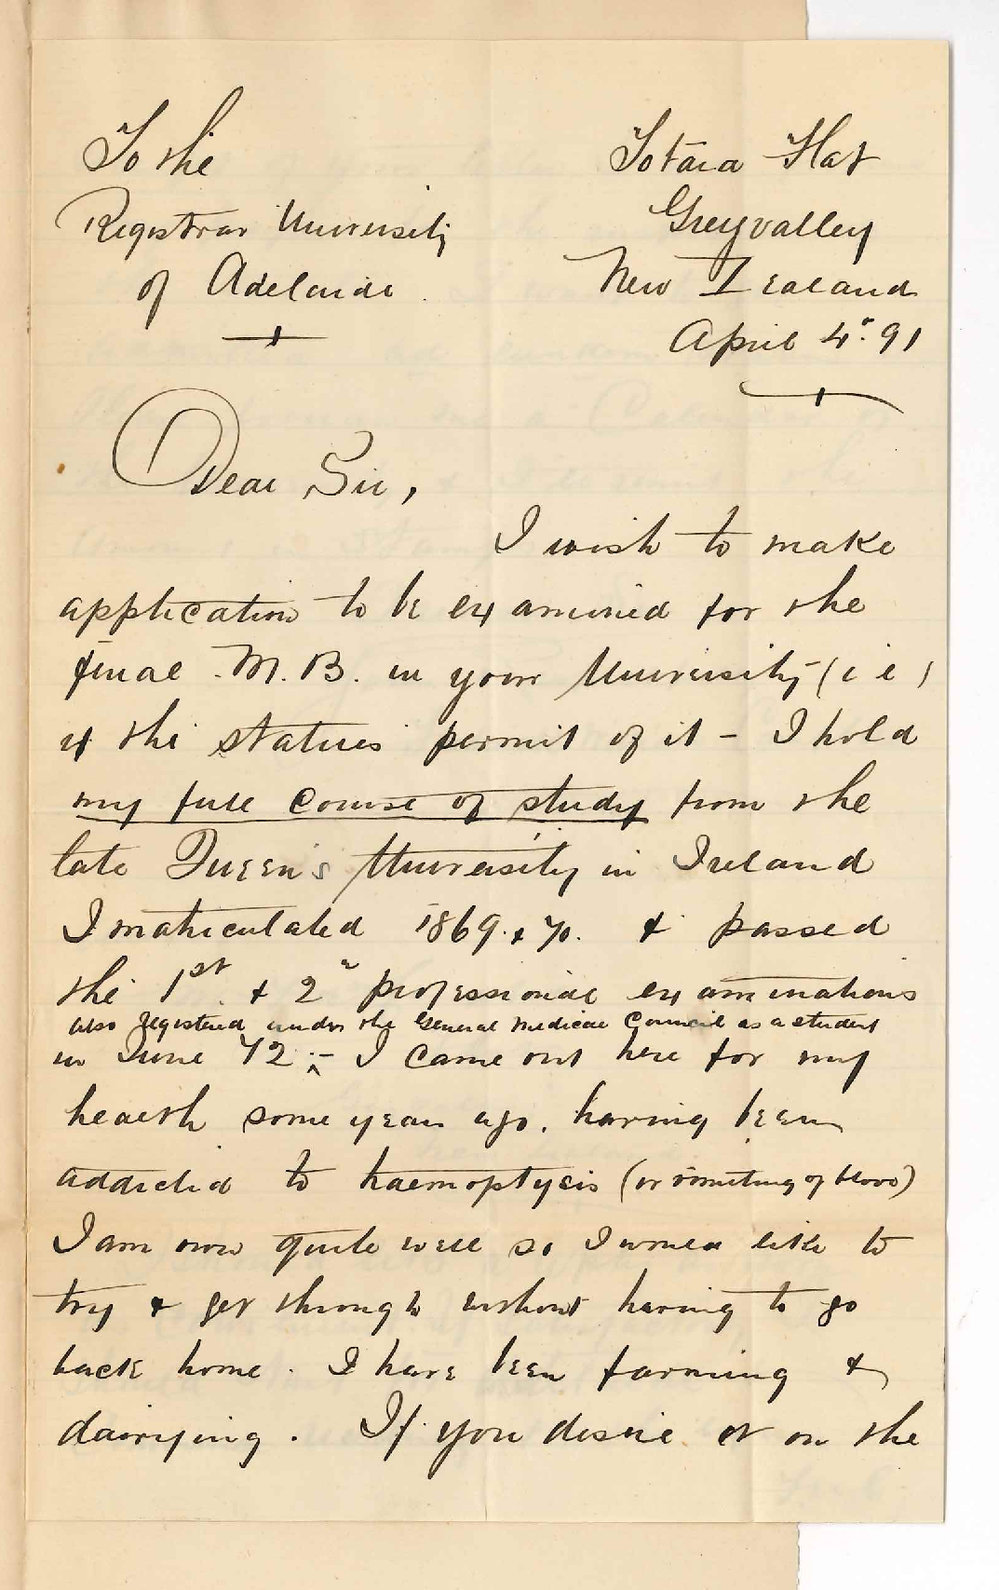 To the
Registrar University
of Adelaide
Totara Flat
Greyvalley
New Zealand
April 4. 91
Dear Sir,
I wish to make
application to be examined for the
final M.B. in your University (i e)
if the statues permit of it – I hold
my full course of study from the
late Queen's University in Ireland
I matriculated 1869 & 70. & passed
the 1st & 2n professional examinations
also registered under the General Medical Council as a student
in June 72 :– I came out here for my
health some years ago, having been
addicted to haemoptysis (or vomiting of blood)
I am now quite well so I would like to
try & get through without having to go
back home. I have been farming &
dairying. If you desire it on the